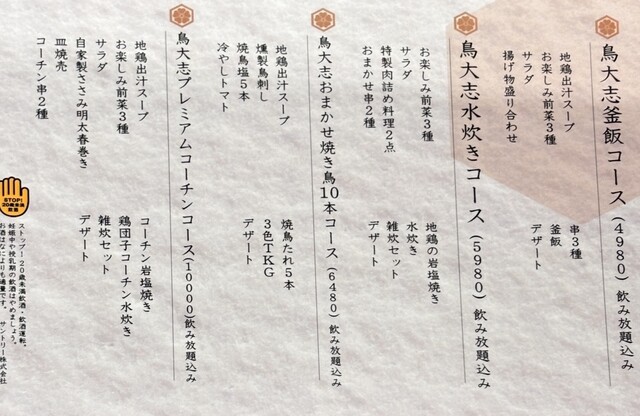 鳥大志釜飯コース(4980)飲み放題込み
地鶏出汁スープ
お楽しみ前菜3種
サラダ
揚げ物盛り合わせ
串3種
釜飯
デザート
鳥大志水炊きコース(5980)飲み放題込み
お楽しみ前菜3種
サラダ
特製肉詰め料理2点
おまかせ串2種
地鶏の岩塩焼き
水炊き
雑炊セット
デザート
鳥大志おまかせ焼き鳥10本コース(6480)飲み放題込み
地鶏出汁スープ
燻製鳥刺し
焼鳥塩5本
冷やしトマト
焼鳥たれ5本
3色TKG
デザート
鳥大志プレミアムコーチンコース(10000)飲み放題込み
地鶏出汁スープ
お楽しみ前菜3種
サラダ
自家製ささみ明太春巻き
皿焼売
コーチン串2種
コーチン岩塩焼き
鶏団子コーチン水炊き
雑炊セット
デザート
STOP!
20歳未満
飲酒
ストップ!20歳未満飲酒・飲酒運転。
妊娠中や授乳期の飲酒はやめましょう。
お酒はなによりも適量です。 サントリー株式会社